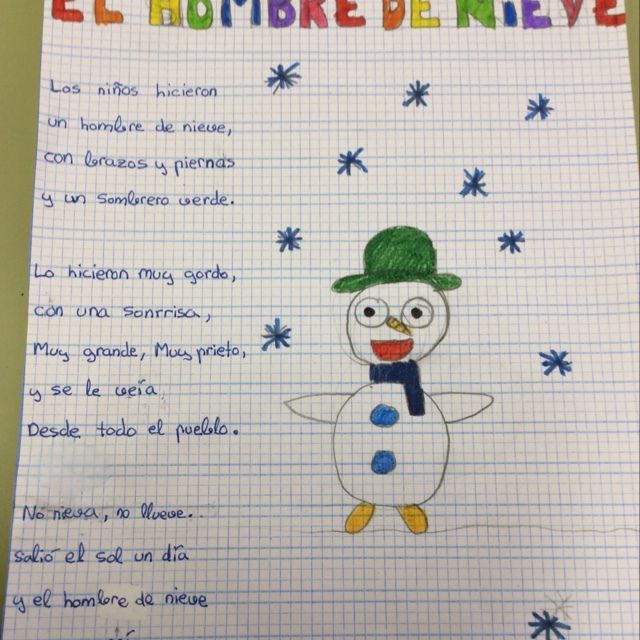 EL HOMBRE DE NIEVE
Los niños hicieron
un hombre de nieve,
con brazos y piernas
y un sombrero verde.
Lo hicieron muy gordo,
con una sonrrisa,
Muy grande, Muy prieto,
y se le veía
Desde todo el pueblo.
No nieva, no llueve..
salió el sol un día
y el hombre de nieve